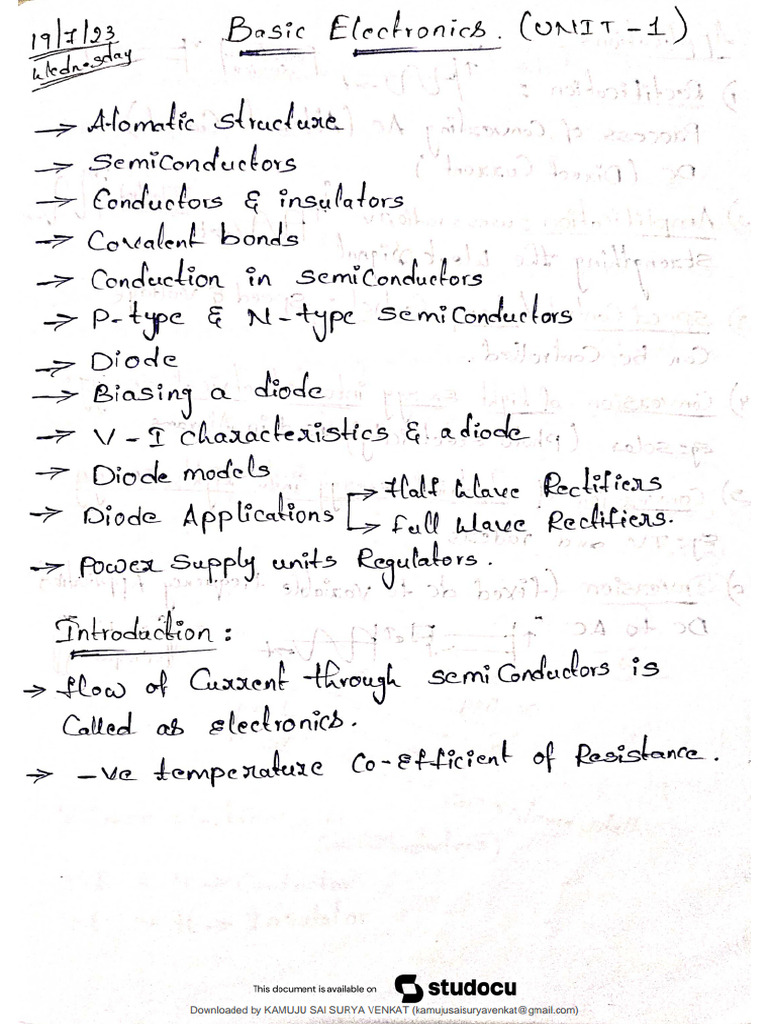 19/7/23
Wednesday
Basic Electronics. (UNIT-1)
→ Atomatic structure
→ Semiconductors
→ Conductors & insulators
→ Covalent bonds
→ Conduction in semiconductors
→ P-type & N-type semiconductors
→ Diode
→ Biasing a diode
→ V-I characteristics & a diode
→ Diode models
→ Diode Applications → Half Wave Rectifiers
→ Full Wave Rectifiers.
→ Power supply units Regulators.
Introduction:
→ flow of Current through semiconductors is
Called as electronics.
→ -ve temperature Co-Efficient of Resistance.
This document is available on studocu
Downloaded by KAMUJU SAI SURYA VENKAT (kamujusaisuryavenkat@gmail.com)